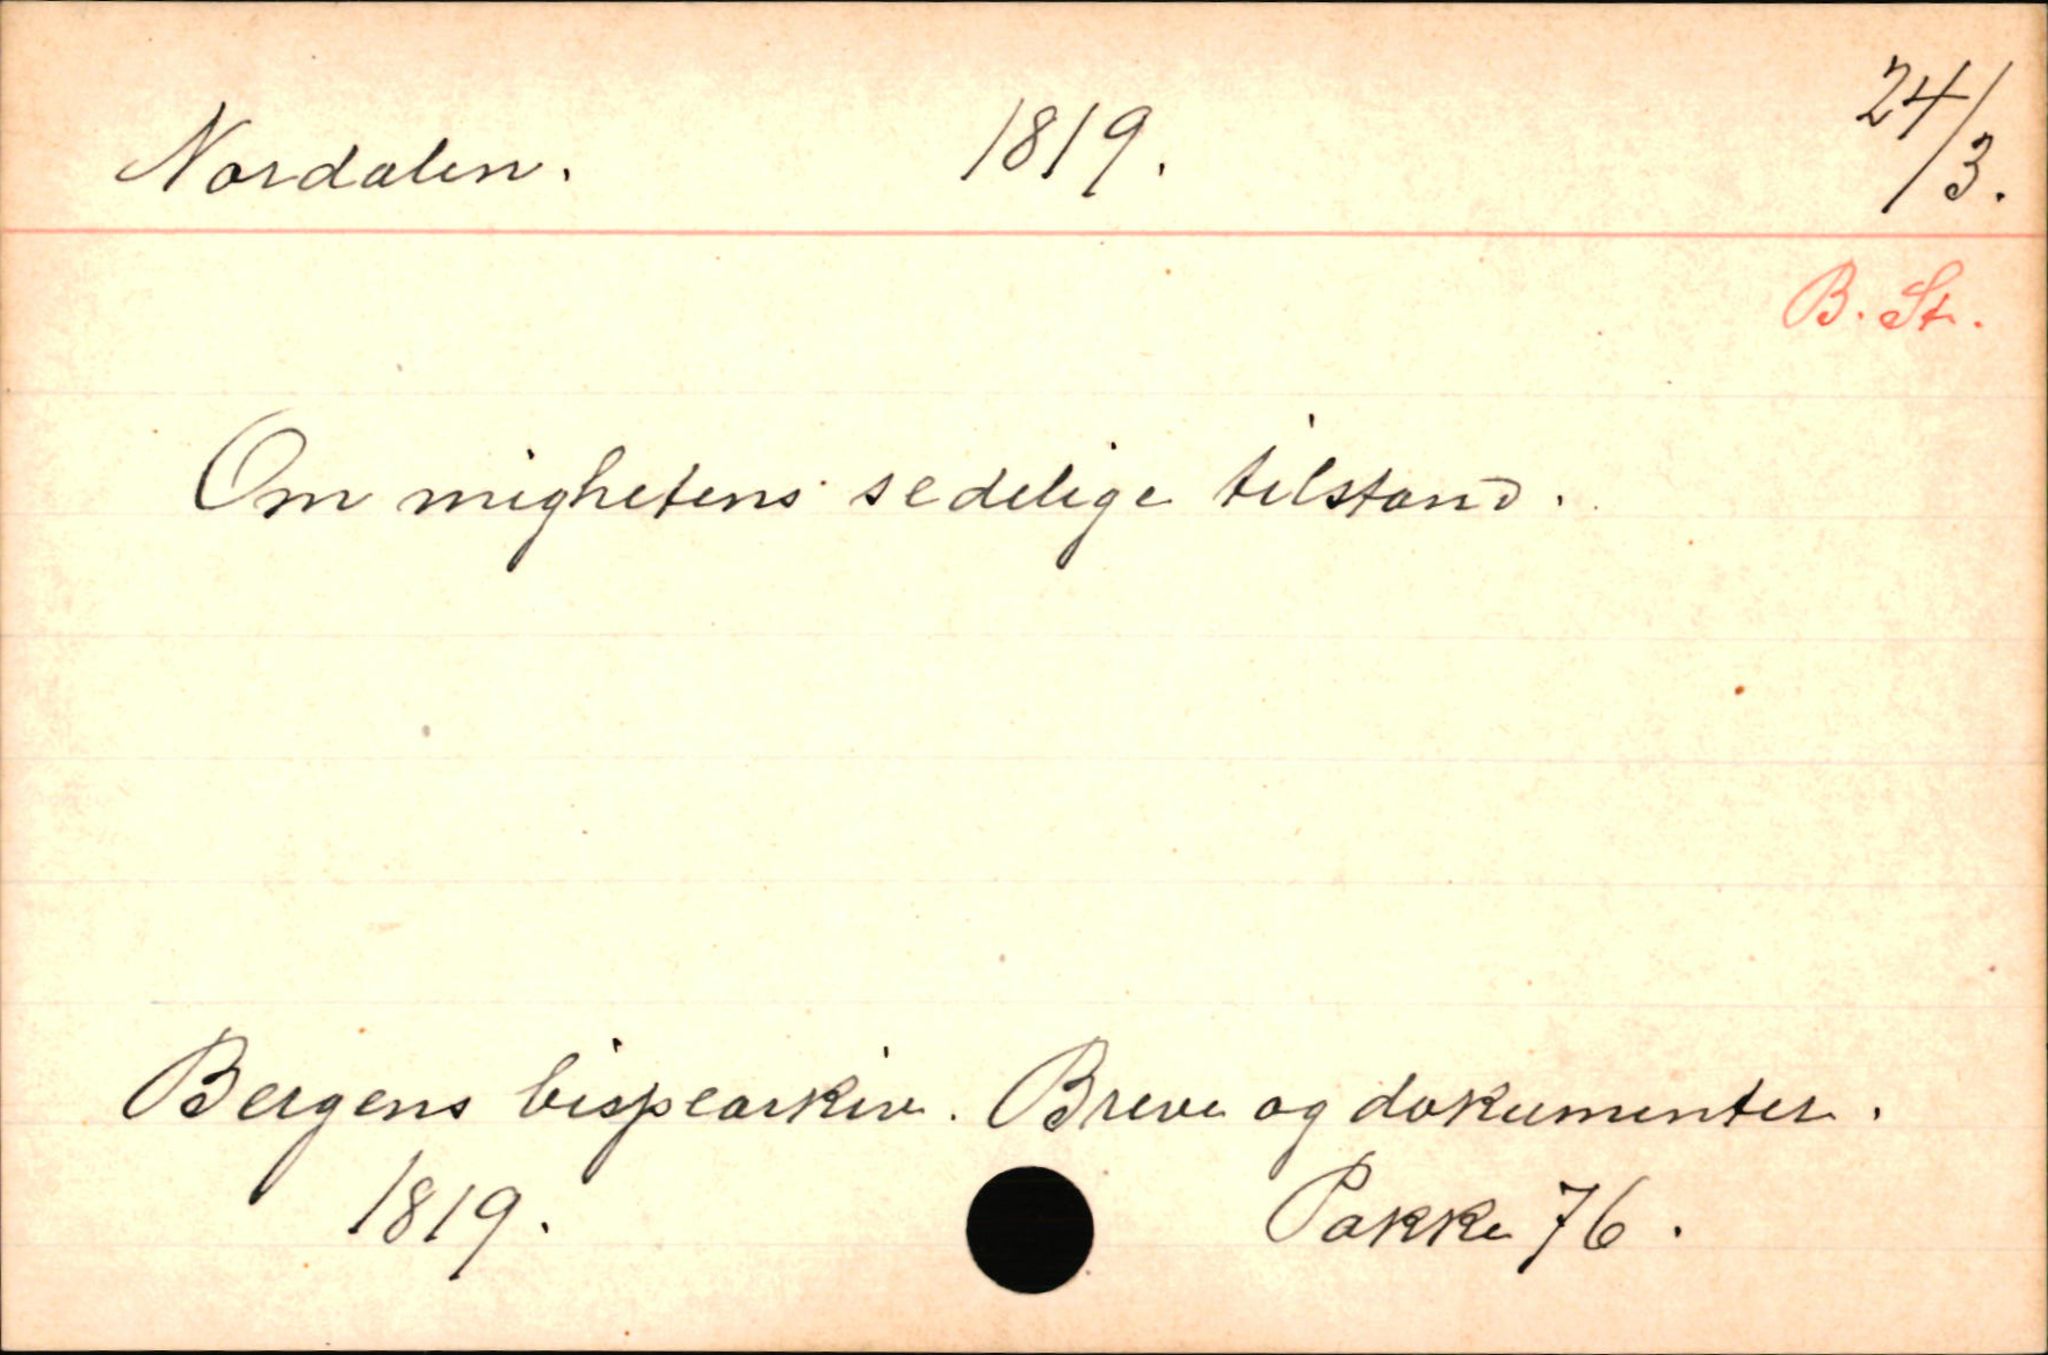 Nordalen. 1819. 24/3.
B. St.
Om mighetens sedelige tilstand.
Bergens bispearkiv. Breve og dokumenter.
1819. Pakke 76.